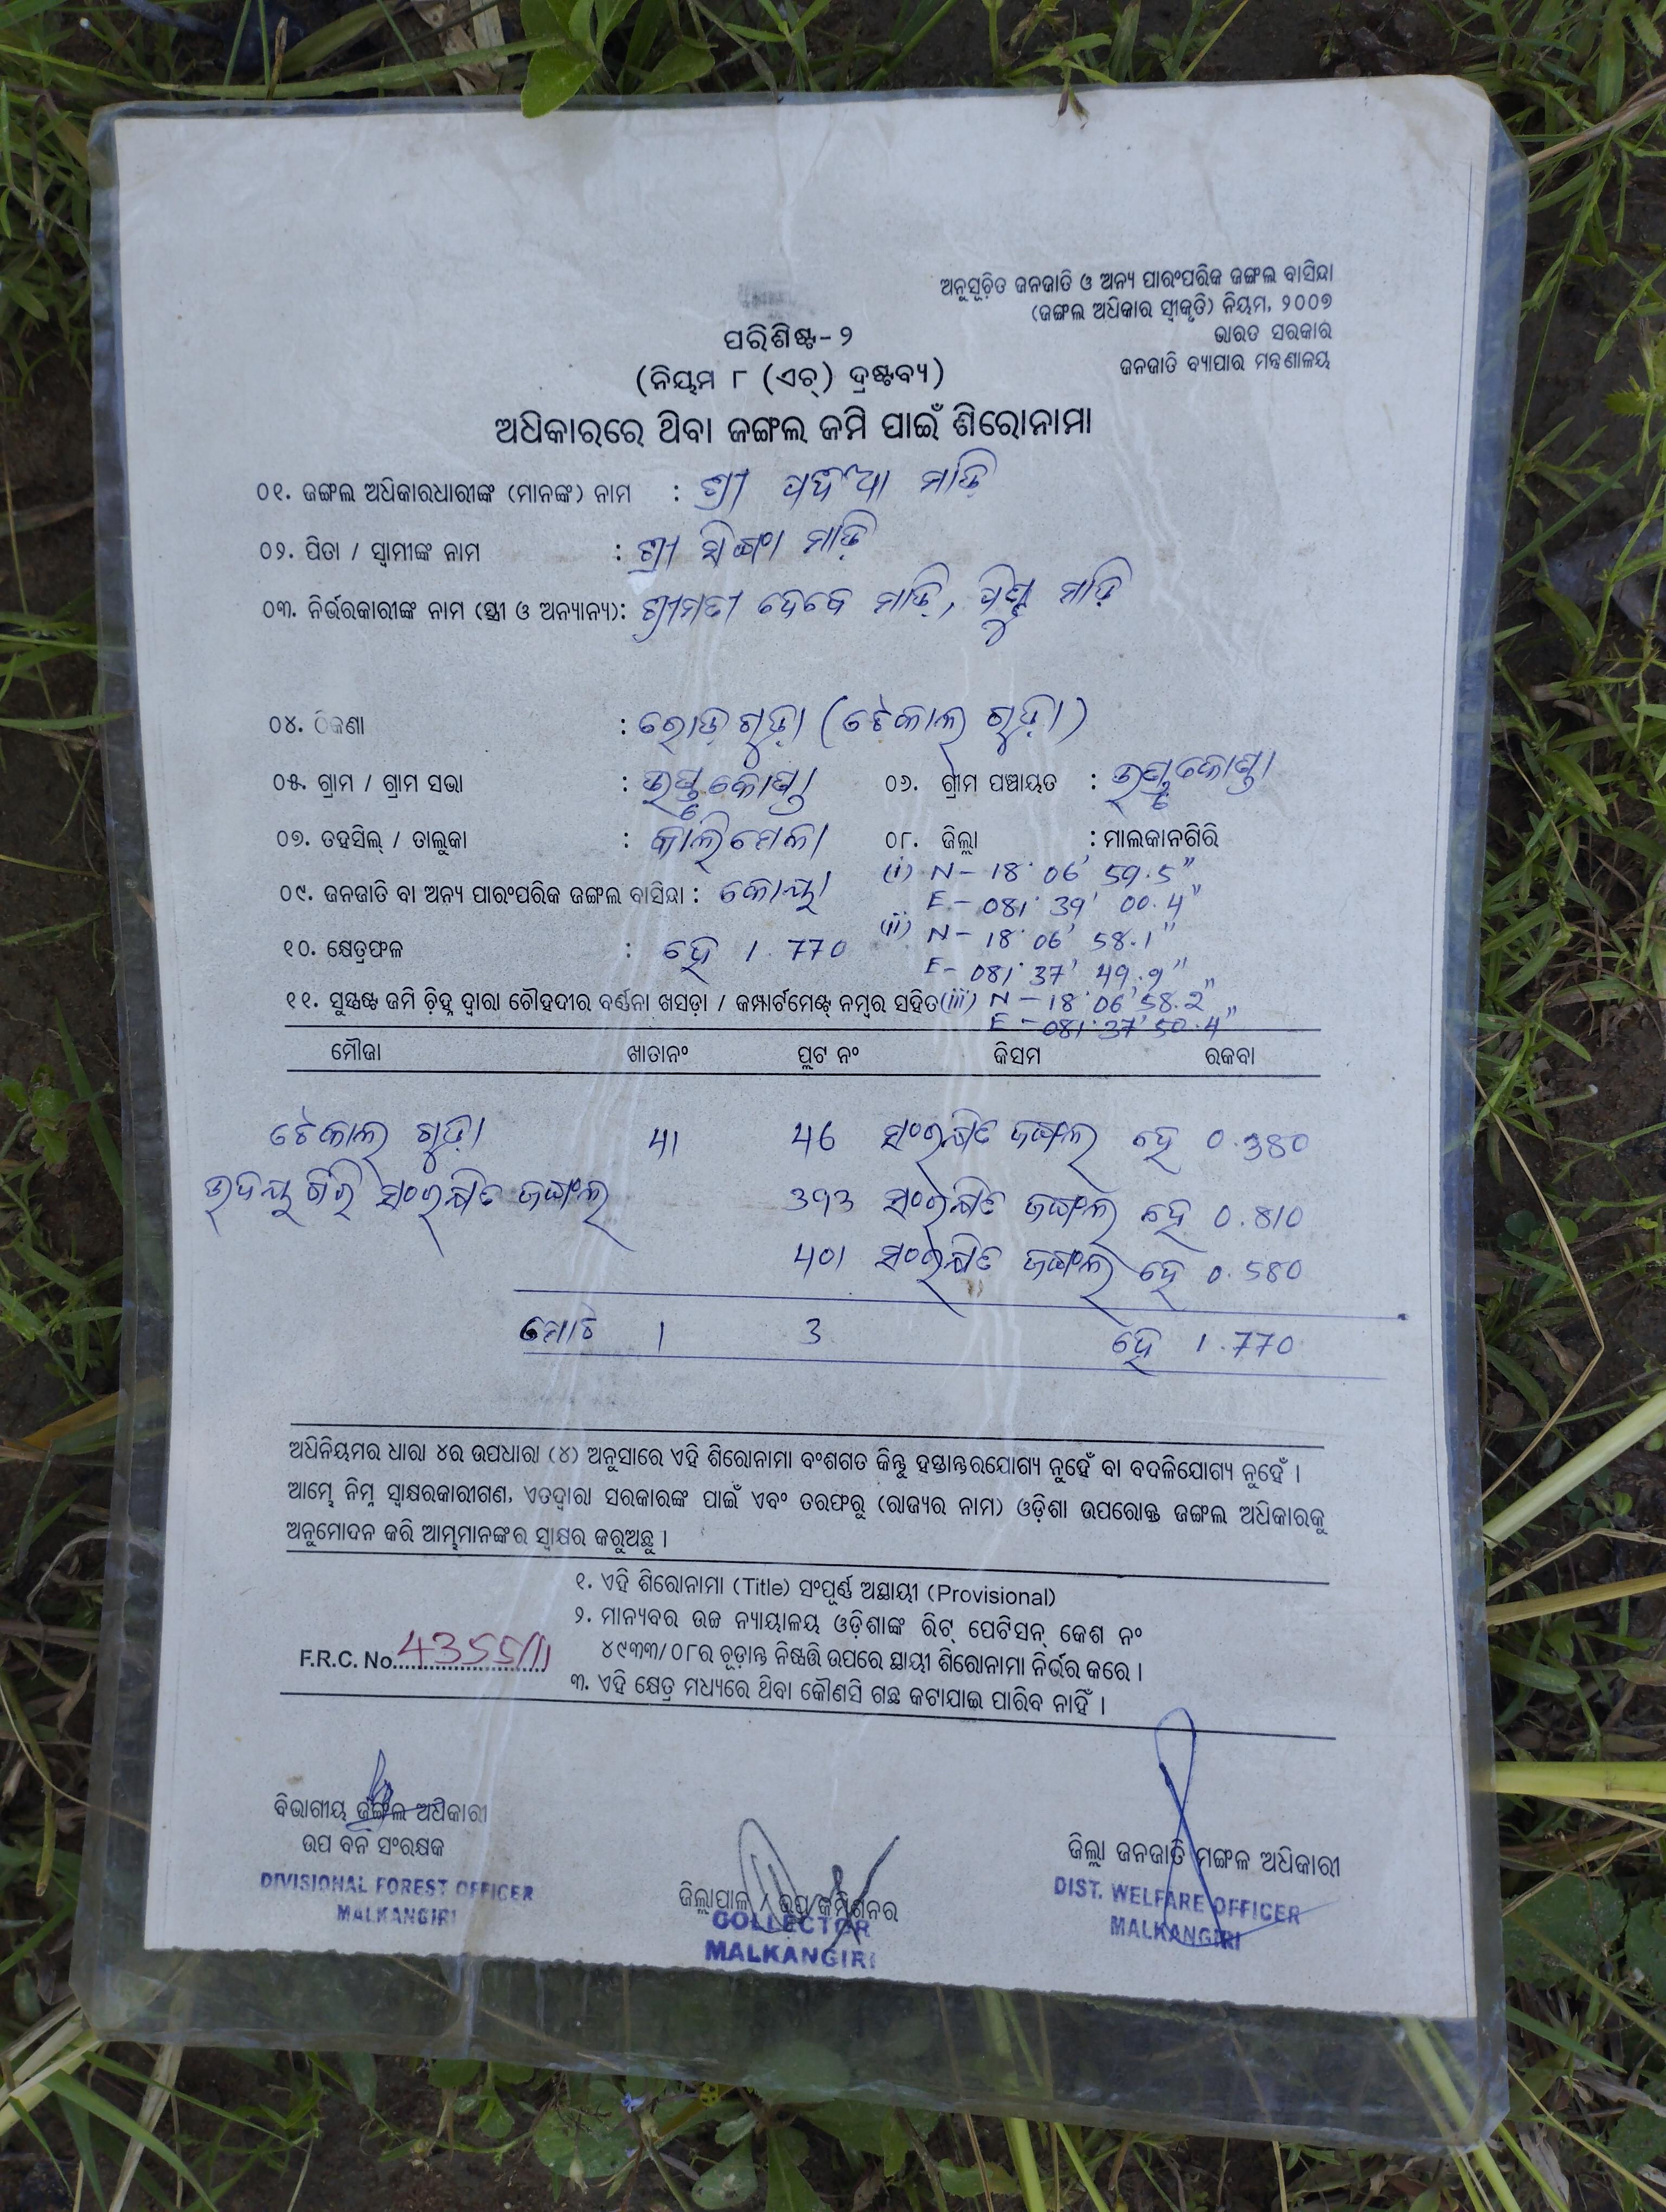 ଅନୁସୂଚିତ ଜନଜାତି ଓ ଅନ୍ୟ ପାରଂପରିକ ଜଙ୍ଗଲ ବାସିନ୍ଦା
(ଜଙ୍ଗଲ ଅଧିକାର ସ୍ୱୀକୃତି) ନିୟମ, ୨୦୦୭
ଭାରତ ସରକାର
ଜନଜାତି ବ୍ୟାପାର ମନ୍ତ୍ରଣାଳୟ
ପରିଶିଷ୍ଟ-୨
(ନିୟମ ୮ (ଏଚ୍) ଦ୍ରଷ୍ଟବ୍ୟ)
ଅଧିକାରରେ ଥିବା ଜଙ୍ଗଲ ଜମି ପାଇଁ ଶିରୋନାମା
୦୧. ଜଙ୍ଗଲ ଅଧିକାରଧାରୀଙ୍କ (ମାନଙ୍କ) ନାମ : ଶ୍ରୀ ମାଡ଼ି
୦୨. ପିତା / ସ୍ୱାମୀଙ୍କ ନାମ : ଶ୍ରୀ ମାଡ଼ି
୦୩. ନିର୍ଭରକାରୀଙ୍କ ନାମ (ସ୍ତ୍ରୀ ଓ ଅନ୍ୟାନ୍ୟ): ଶ୍ରୀମତୀ ଦେବେ ମାଡ଼ି, ମାଡ଼ି
୦୪. ଠିକଣା : ରୋଡ଼ଗୁଡ଼ା (ଟେକାଲ ଗୁଡ଼ା)
୦୫. ଗ୍ରାମ / ଗ୍ରାମ ସଭା : ୦୬. ଗ୍ରାମ ପଞ୍ଚାୟତ :
୦୭. ତହସିଲ୍ / ତାଲୁକା : କାଲିମେଳା ୦୮. ଜିଲ୍ଲା : ମାଲକାନଗିରି
୦୯. ଜନଜାତି ବା ଅନ୍ୟ ପାରଂପରିକ ଜଙ୍ଗଲ ବାସିନ୍ଦା : କୋୟା
(i) N - 18° 06' 59.5"
E - 081° 39' 00.4"
୧୦. କ୍ଷେତ୍ରଫଳ : ହେ 1.770
(ii) N - 18° 06' 58.1"
E - 081° 37' 49.9"
୧୧. ସୁସ୍ପଷ୍ଟ ଜମି ଚିହ୍ନ ଦ୍ୱାରା ଚୌହଦୀର ବର୍ଣ୍ଣନା ଖସଡ଼ା / କମ୍ପାର୍ଟମେଣ୍ଟ୍ ନମ୍ବର ସହିତ (iii) N - 18° 06' 58.2"
E - 081° 37' 50.4"
ମୌଜା ଖାତାନଂ ପ୍ଲଟ ନଂ କିସମ ରକବା
ଟେକାଲ ଗୁଡ଼ା 41 46 ସଂରକ୍ଷିତ ଜଙ୍ଗଲ ହେ 0.380
ଉଦୟଗିରି ସଂରକ୍ଷିତ ଜଙ୍ଗଲ ସଂରକ୍ଷିତ ଜଙ୍ଗଲ ହେ 0.810
401 ସଂରକ୍ଷିତ ଜଙ୍ଗଲ ହେ 0.580
ମୋଟ 1 3 ହେ 1.770
ଅଧିନିୟମର ଧାରା ୪ର ଉପଧାରା (୪) ଅନୁସାରେ ଏହି ଶିରୋନାମା ବଂଶଗତ କିନ୍ତୁ ହସ୍ତାନ୍ତରଯୋଗ୍ୟ ନୁହେଁ ବା ବଦଳିଯୋଗ୍ୟ ନୁହେଁ ।
ଆମ୍ଭେ ନିମ୍ନ ସ୍ୱାକ୍ଷରକାରୀଗଣ, ଏତଦ୍ୱାରା ସରକାରଙ୍କ ପାଇଁ ଏବଂ ତରଫରୁ (ରାଜ୍ୟର ନାମ) ଓଡ଼ିଶା ଉପରୋକ୍ତ ଜଙ୍ଗଲ ଅଧିକାରକୁ
ଅନୁମୋଦନ କରି ଆମ୍ଭମାନଙ୍କର ସ୍ୱାକ୍ଷର କରୁଅଛୁ ।
୧. ଏହି ଶିରୋନାମା (Title) ସଂପୂର୍ଣ୍ଣ ଅସ୍ଥାୟୀ (Provisional)
୨. ମାନ୍ୟବର ଉଚ୍ଚ ନ୍ୟାୟାଳୟ ଓଡ଼ିଶାଙ୍କ ରିଟ୍ ପେଟିସନ୍ କେଶ ନଂ
୪୯୩୩/୦୮ର ଚୂଡ଼ାନ୍ତ ନିଷ୍ପତ୍ତି ଉପରେ ସ୍ଥାୟୀ ଶିରୋନାମା ନିର୍ଭର କରେ ।
F.R.C. No. 4355/11
୩. ଏହି କ୍ଷେତ୍ର ମଧ୍ୟରେ ଥିବା କୌଣସି ଗଛ କଟାଯାଇ ପାରିବ ନାହିଁ ।
ବିଭାଗୀୟ ଜଙ୍ଗଲ ଅଧିକାରୀ
ଉପ ବନ ସଂରକ୍ଷକ
DIVISIONAL FOREST OFFICER
MALKANGIRI
ଜିଲ୍ଲାପାଳ / ଉପ କମିଶନର
COLLECTOR
MALKANGIRI
ଜିଲ୍ଲା ଜନଜାତି ମଙ୍ଗଳ ଅଧିକାରୀ
DIST. WELFARE OFFICER
MALKANGIRI